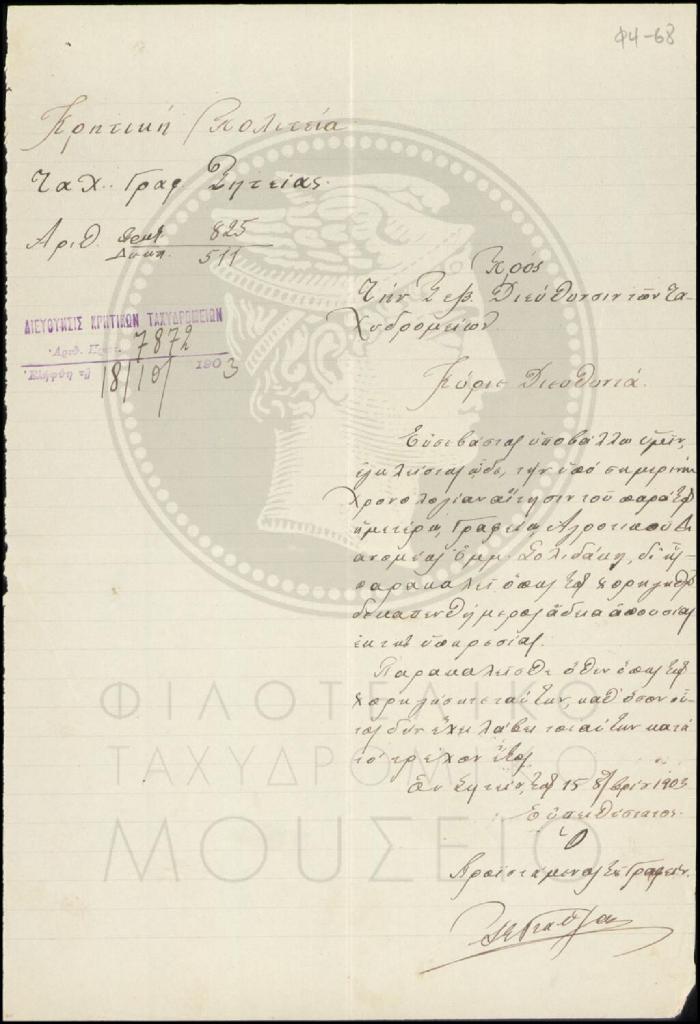 Φ4-68
Κρητική Πολιτεία
Ταχ. Γραφ. Σητείας.
Αριθ. Πρωτ. 825
Διεκπ. 511
ΔΙΕΥΘΥΝΣΙΣ ΚΡΗΤΙΚΩΝ ΤΑΧΥΔΡΟΜΕΙΩΝ
Ἀριθ. Πρωτ. 7872
Ἐλήφθη τῇ 18/10/ 1903
Πρός
Τὴν Σεβ. Διεύθυνσιν τῶν Τα-
χυδρομείων
Κύριε Διευθυντά.
Εὐσεβάστως ὑποβάλλω ὑμῖν,
ἐγκλείστως ὧδε, τὴν ὑπὸ σημερινὴν
χρονολογίαν αἴτησιν τοῦ παρὰ τῷ
ἡμετέρῳ Γραφείῳ Ἀγροτικοῦ δια-
νομέως Ἐμμ. Σολιδάκη, δι' ἧς
παρακαλεῖ ὅπως τῷ χορηγηθῇ
δεκαπενθήμερος ἄδεια ἀπουσίας
ἐκ τῆς ὑπηρεσίας.
Παρακαλεῖσθε ὅθεν ὅπως τῷ
χορηγήσητε ταύτην, καθ' ὅσον οὗ-
τος δὲν ἔχει λάβει τοιαύτην κατὰ
τὸ τρέχον ἔτος.
Ἐν Σητείᾳ τῇ 15 8/βρίου 1903
Εὐπειθέστατος
Ὁ
Προϊστάμενος τοῦ Γραφείου
ΦΙΛΟΤΕΛΙΚΟ
ΤΑΧΥΔΡΟΜΙΚΟ
ΜΟΥΣΕΙΟ